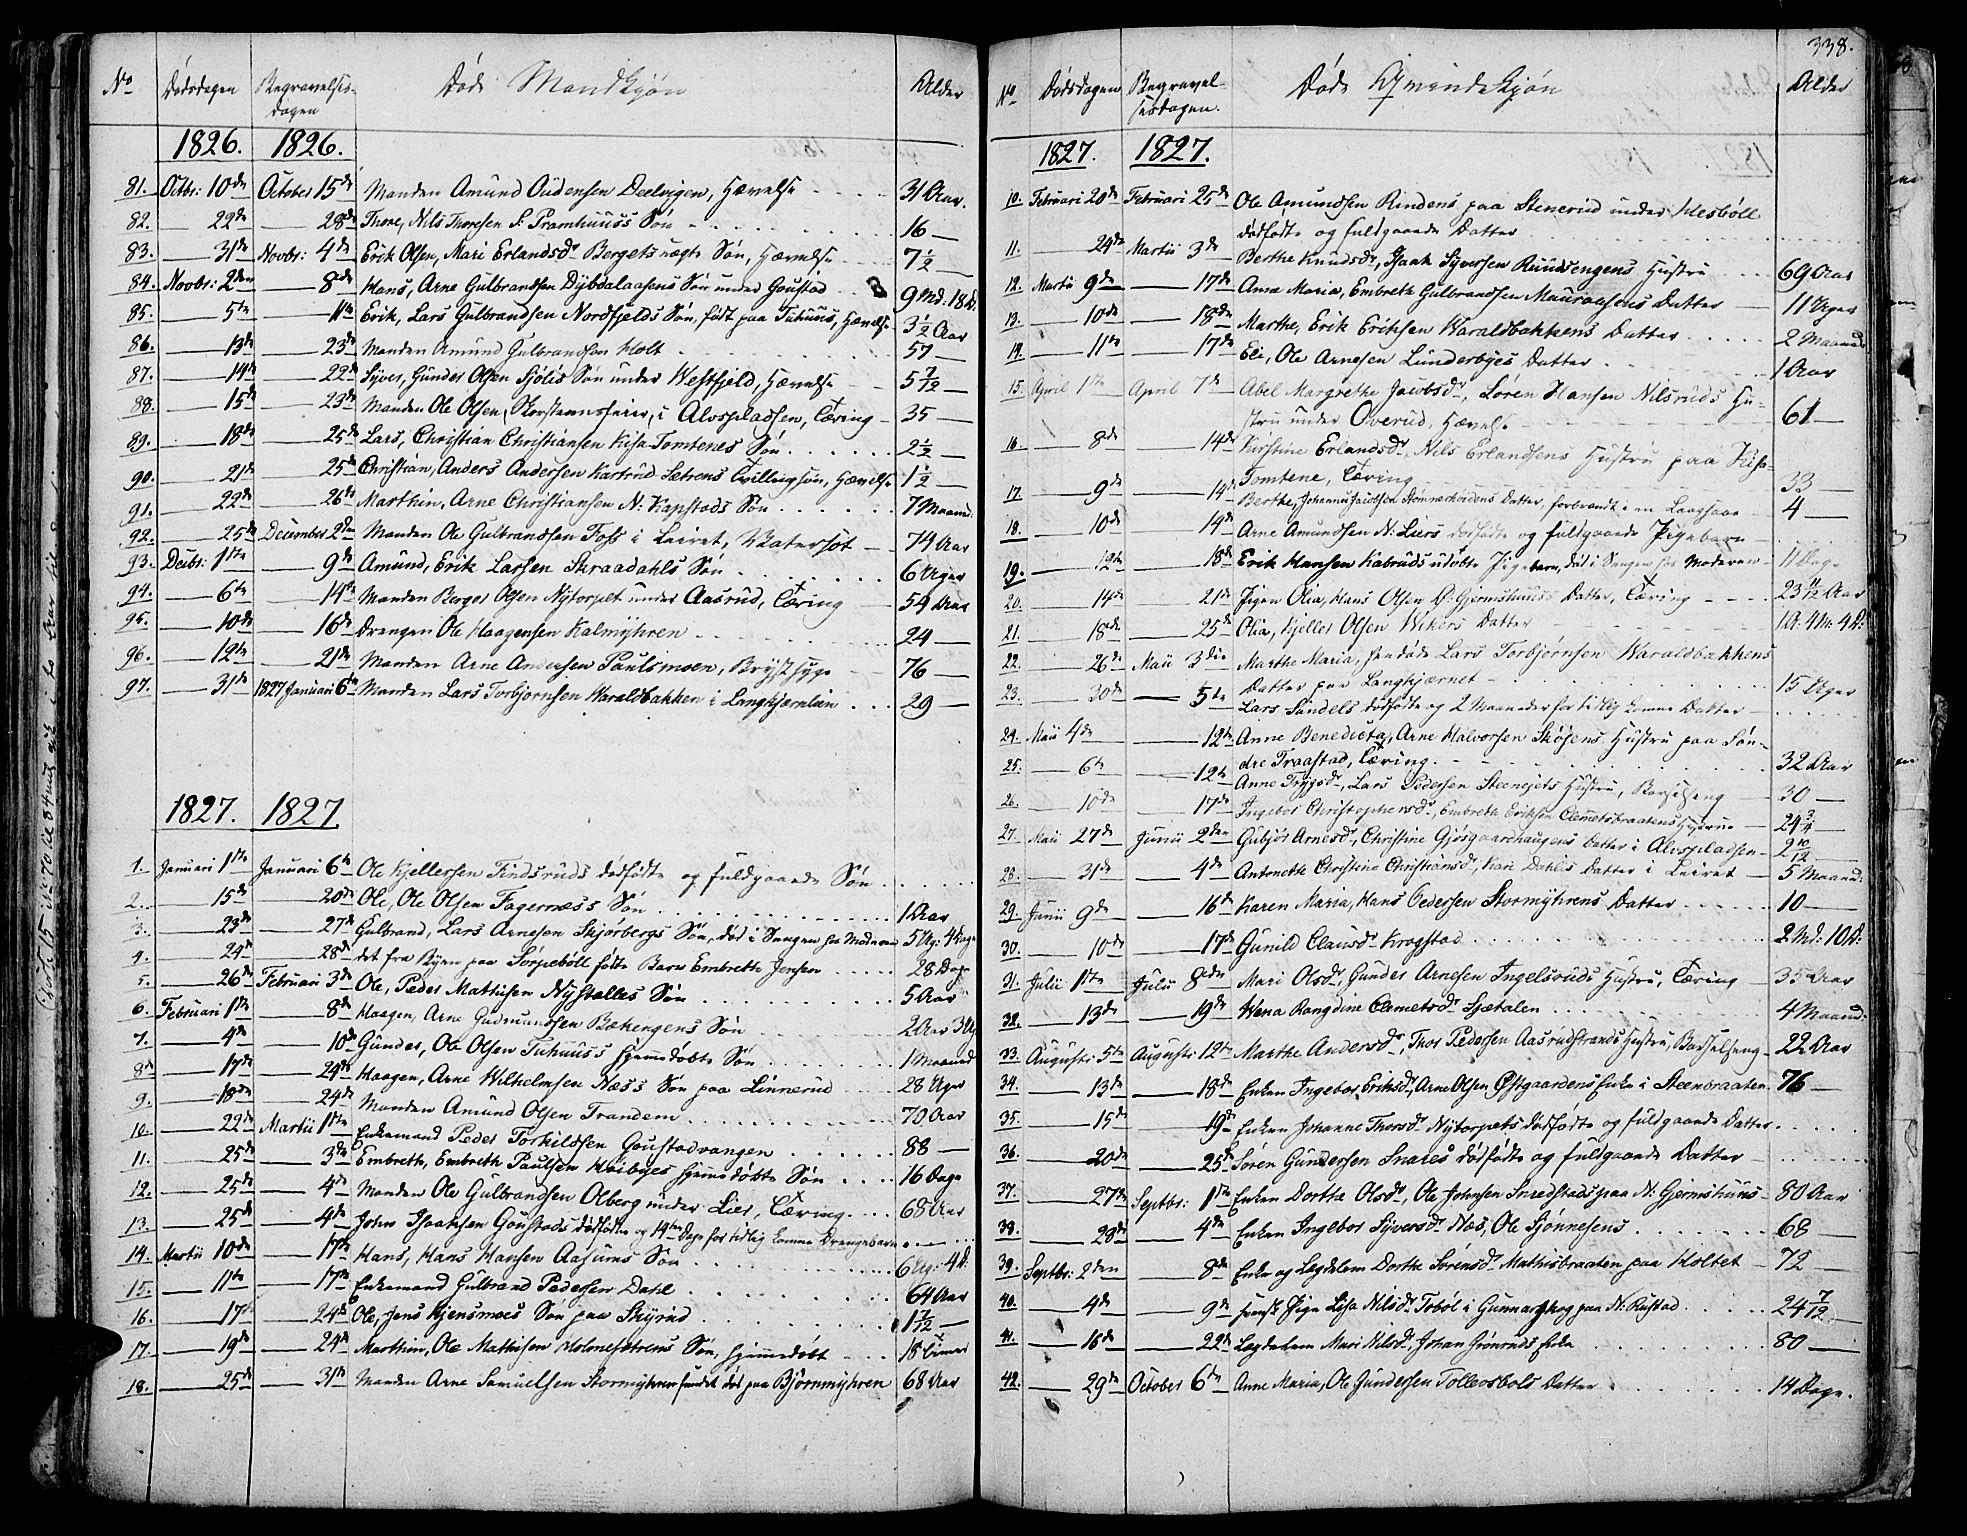 No Dødsdagen Begravelses-dagen Døde Mandkjøn Alder
1826. 1826.
81. Octbr: 10de October 15de Manden Amund Audensen Deelvigen, Hævelse 31 Aar.
82. 22de 28de Thore, Nils Thoresen S: Pramhuuss Søn 16
83. 31de Novbr: 4de Erik Olsen, Mari Erlandsdr Bergets uægte Søn, Hævelse 7 1/2
84. Novbr: 2den 8de Hans, Arne Gulbrandsen Dybdalaasens Søn under Goustad 9 Md: 18 D.
85. 5te 11te Erik, Lars Gulbrandsen Nordfjelds Søn, født paa Tuhuus, Hævelse 3 1/2 Aar
86. 13de 23de Manden Amund Gulbrandsen Holt 57
87. 14de 22de Syver, Gunder Olsen Sjølis Søn under Westfjeld, Hævelse 5 7/12
88. 15de 23de Manden Ole Olsen, Skorsteensfeier, i Alvspladsen, Tæring 35
89. 18de 25de Lars, Christian Christiansen Kisa-Tomtenes Søn 2 1/2
90. 21de 25de Christian, Anders Andersen Kartrud Sætrens Tvillingsøn, Hævelse 1 1/2
91. 22de 26de Marthin, Arne Christiansen N: Kapstads Søn 7 Maand:
92. 25de December 2den Manden Ole Gulbrandsen Foss i Leiret, Vatersot 74 Aar
93. Decbr: 1ste 9de Amund, Erik Larsen Skraadahls Søn 6 Uger
94. 6te 14de Manden Berger Olsen Nytorpet under Aasrud, Tæring 54 Aar
95. 10de 16de Drengen Ole Haagensen Kalmyhren 24
96. 12te 21de Manden Arne Andersen Paulsmoen, Brystsyge 76
97. 31de 1827 Januari 6te Manden Lars Torbjørnsen Waraldbakken i Langkjærnlien 29
1827. 1827
1. Januari 1ste Januari 6te Ole Kjellersen Findsruds dødfødte og fuldgaaede Søn
2. 15de 20de Ole, Ole Olsen Fagernæss Søn 1 Aar
3. 23de 27de Gulbrand, Lars Arnesen Skjørbergs Søn, død i Sengen hos Moderen 5 Ug: 4 Dage
4. 24de 28de det fra Byen paa Sørpebøll satte Barn Embreth Jensen 28 Dage
5. 26de Februari 3de Ole, Peder Mathisen Nystalles Søn 5 Aar
6. Februari 1ste 8de Haagen, Arne Gudmundsen Bækengens Søn 2 Aar 3 Ug
7. 4de 10de Gunder, Ole Olsen Tuhuuss hjemmedøbte Søn 1 Maaned
8. 17de 24de Haagen, Arne Wilhelmsen Næss Søn paa Linnerud 28 Uger
9. 18de 24de Manden Amund Olsen Trandem 70 Aar
10. 22de Martii 1ste Enkemand Peder Torkildsen Goustadvangen 88
11. 25de 3de Embreth, Embreth Paulsen Høibyes hjemmedøbte Søn 16 Dage
12. 25de 4de Manden Ole Gulbrandsen Olberg under Lier, Tæring 68 Aar
13. 25de 4de John Isaaksen Goustads dødfødte og 14ten Dage for tidlig komne Drengebarn
14. Martii 10de 17de Hans, Hans Hansen Aasums Søn 6 Ug: 4 D:
15. 11te 17de Enkemand Gulbrand Pedersen Dahl 64 Aar
16. 17de 24de Ole, Jens Kjensmoes Søn paa Skyrud 1 7/12
17. 19de 24de Marthin, Ole Mathisen Holmesætrens Søn, hjemmedøbt 18 Timer
18. 25de 31te Manden Arne Samuelsen Stormyhren fundet død paa Bjørnmyhren 68 Aar
338.
No Dødsdagen Begravel-sesdagen. Døde Qvindekjøn Alder
1827. 1827.
10. Februari 20de Februari 25de Ole Amundsen Rundens paa Stenerud under Hesbøll
dødfødte og fuldgaaede Datter
11. 24de Martii 3de Berthe Knudsdr, Isaak Syversen Ruudsengens Hustru 69 Aar
12. Martii 9de 17de Anne Maria, Embreth Gulbrandsen Mauraasens Datter 11 Uger
13. 10de 18de Marthe, Erik Eriksen Waraldbakkens Datter 2 Maaned
14. 11te 17de Eli, Ole Arnesen Lunderbyes Datter 1 Aar
15. April 1ste April 7de Abel Margrethe Jacobsdr, Søren Hansen Nilsruds Hu-
stru under Overud, Hævelse 61
16. 8de 14de Kirstine Erlandsdr, Nils Erlandsens Hustru paa Kisa-
Tomtene, Tæring 33
17. 9de 14de Berthe, Johannes Jacobsen Stommerholdens Datter, forbrandt i en Laugsaae 4
18. 10de 14de Arne Amundsen N: Liers dødfødte og fuldgaaede Pigebarn
19. 12te 18de Erik Hansen Kabruds udøbte Pigebarn, død i Sengen hos Moderen 11 Dage
20. 14de 21de Pigen Olia, Hans Olsen Ø: Gjermshuuss Datter, Tæring 23 11/12 Aar
21. 18de 25de Olia, Kjeller Olsen Wikers Datter 1 A: 4 M: 4 D:
22. 26de Maii 3die Marthe Maria, hendøde Lars Torbjørnsen Waraldbakkens
Datter paa Langkjærnet 15 Uger
23. 30de 5te Lars Sundets dødfødte og 2 Maaneder for tidlig komne Datter
24. Maii 4de 12te Anne Benedicta, Arne Halvorsen Skøsens Hustru paa Søn-
dre Traastad, Tæring 32 Aar
25. 6te 12te Anne Trygsdr, Lars Pedersen Steenejets Hustru, Barselseng 30
26. 10de 17de Ingebor Christophersdr, Embreth Eriksen Clemetsbraatens Hustru 29 3/4
27. Maii 27de Junii 2den Gubjør Arnesdr, Christine Gjøsgaardhaugens Datter i Alvspladsen 2 10/12
28. 31de 4de Antonette Christine Christiansdr, Kari Dahls Datter i Leiret 5 Maaned:
29. Junii 9de 16de Karen Maria, Hans Pedersen Stormyhrens Datter 10
30. 10de 17de Gunild Clausdr Krogstad 2 Md: 10 D:
31. Julii 1ste Julii 8de Mari Olsdr, Gunder Arnesen Ingelsruds Hustru, Tæring 35 Aar
32. 13de 19de Wena Rangdine Clemetsdr Sjøtalen 4 Maaned:
33. Augusti 5te Augusti 12te Marthe Andersdr, Thor Pedersen Aasrudstrands Hustru, Barselseng 22 Aar
34. 13de 18de Enken Ingebor Eriksdr, Arne Olsen Østgaardens Enke i Steenbraaten 76
35. 15de 19de Enken Johanne Thorsdr Nytorpets dødfødte og fuldgaaede Datter
36. 20de 25de Søren Gundersen Snares dødfødte og fuldgaaede Datter
37. 27de Septbr: 1ste Enken Dorthe Olsdr, Ole Johnsen Snredstads paa N: Gjermshuus 80 Aar
38. 28de 4de Enken Ingebor Syversdr Næs, Ole Sjønnesens 68
39. Septbr: 2den 8de Enke og Legdelem Dorthe Sørensdr Mathisbraaten paa Holtet 72
40. 4de 9de svensk Pige Lisa Nilsdr Tobøl i Gunnarskog paa N: Rustad 24 7/12
41. 16de 22de Legdelem Mari Nilsdr, Johan Grønruds Enke 80
42. 29de October 6te Anne Maria, Ole Gundersen Tolleosbøls Datter 14 Dage.